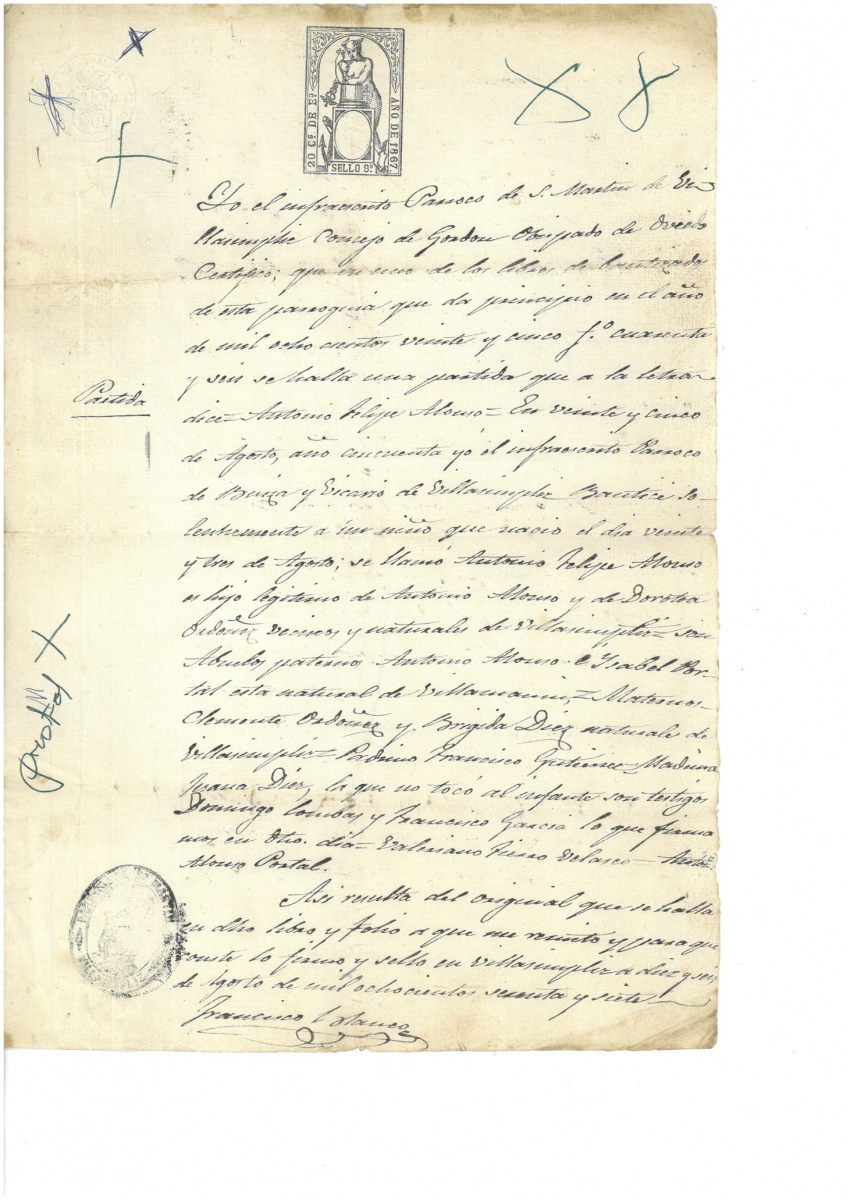 20 Cs. DE Eo.
AÑO DE 1867
SELLO 9º
Yo el infraescrito Parroco de S. Martin de Vi
llasimpliz Concejo de Gordon Obispado de Oviedo
Certifico; que en uno de los libros de bautizados
de esta parroquia que da principio en el año
de mil ocho cientos veinte y cinco f.º cuarenta
y seis se halla una partida que a la letra
Partida
dice = Antonio Felipe Alonso = En veinte y cinco
de Agosto, año cincuenta yó el infraescrito Parroco
de Buiza y Vicario de Villasimpliz Bauticé so-
lennemente a un niño que nacio el dia veinte
y tres de Agosto; se llamó Antonio Felipe Alonso
es hijo legitimo de Antonio Alonso y de Dorotea
Ordoñez vecinos y naturales de Villasimpliz = son
Abuelos paternos Antonio Alonso é Ysabel Por-
tal esta natural de Villamanin, = Maternos
Clemente Ordoñez y Brigida Diez naturales de
Villasimpliz = Padrino Francisco Gutierrez Madrina
Juana Diez, la que no tocó al infante son testigos
Domingo Lombas y Francisco Garcia lo que firma
mos en dho. dia = Valeriano Fierro Velasco = Anto.
Alonso Portal.
Asi resulta del original que se halla
en dho libro y folio a que me remito y para que
conste lo firmo y sello en Villasimpliz a diez y seis
de Agosto de mil ochocientos sesenta y siete
Francisco Blanco